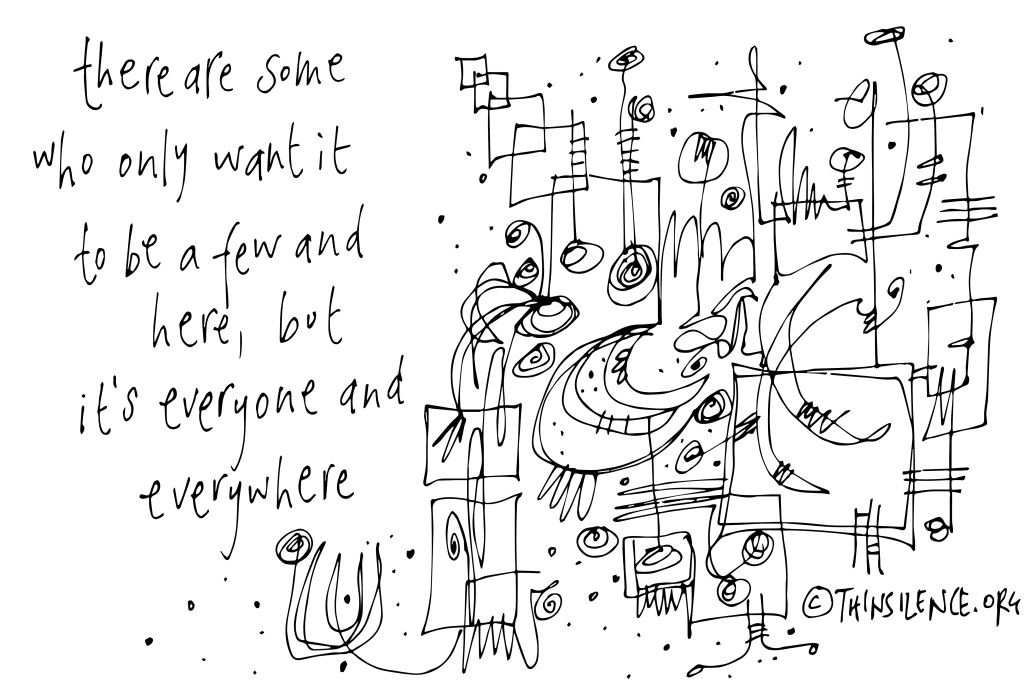 there are some
who only want it
to be a few and
here, but
it's everyone and
everywhere
©THINSILENCE.ORG